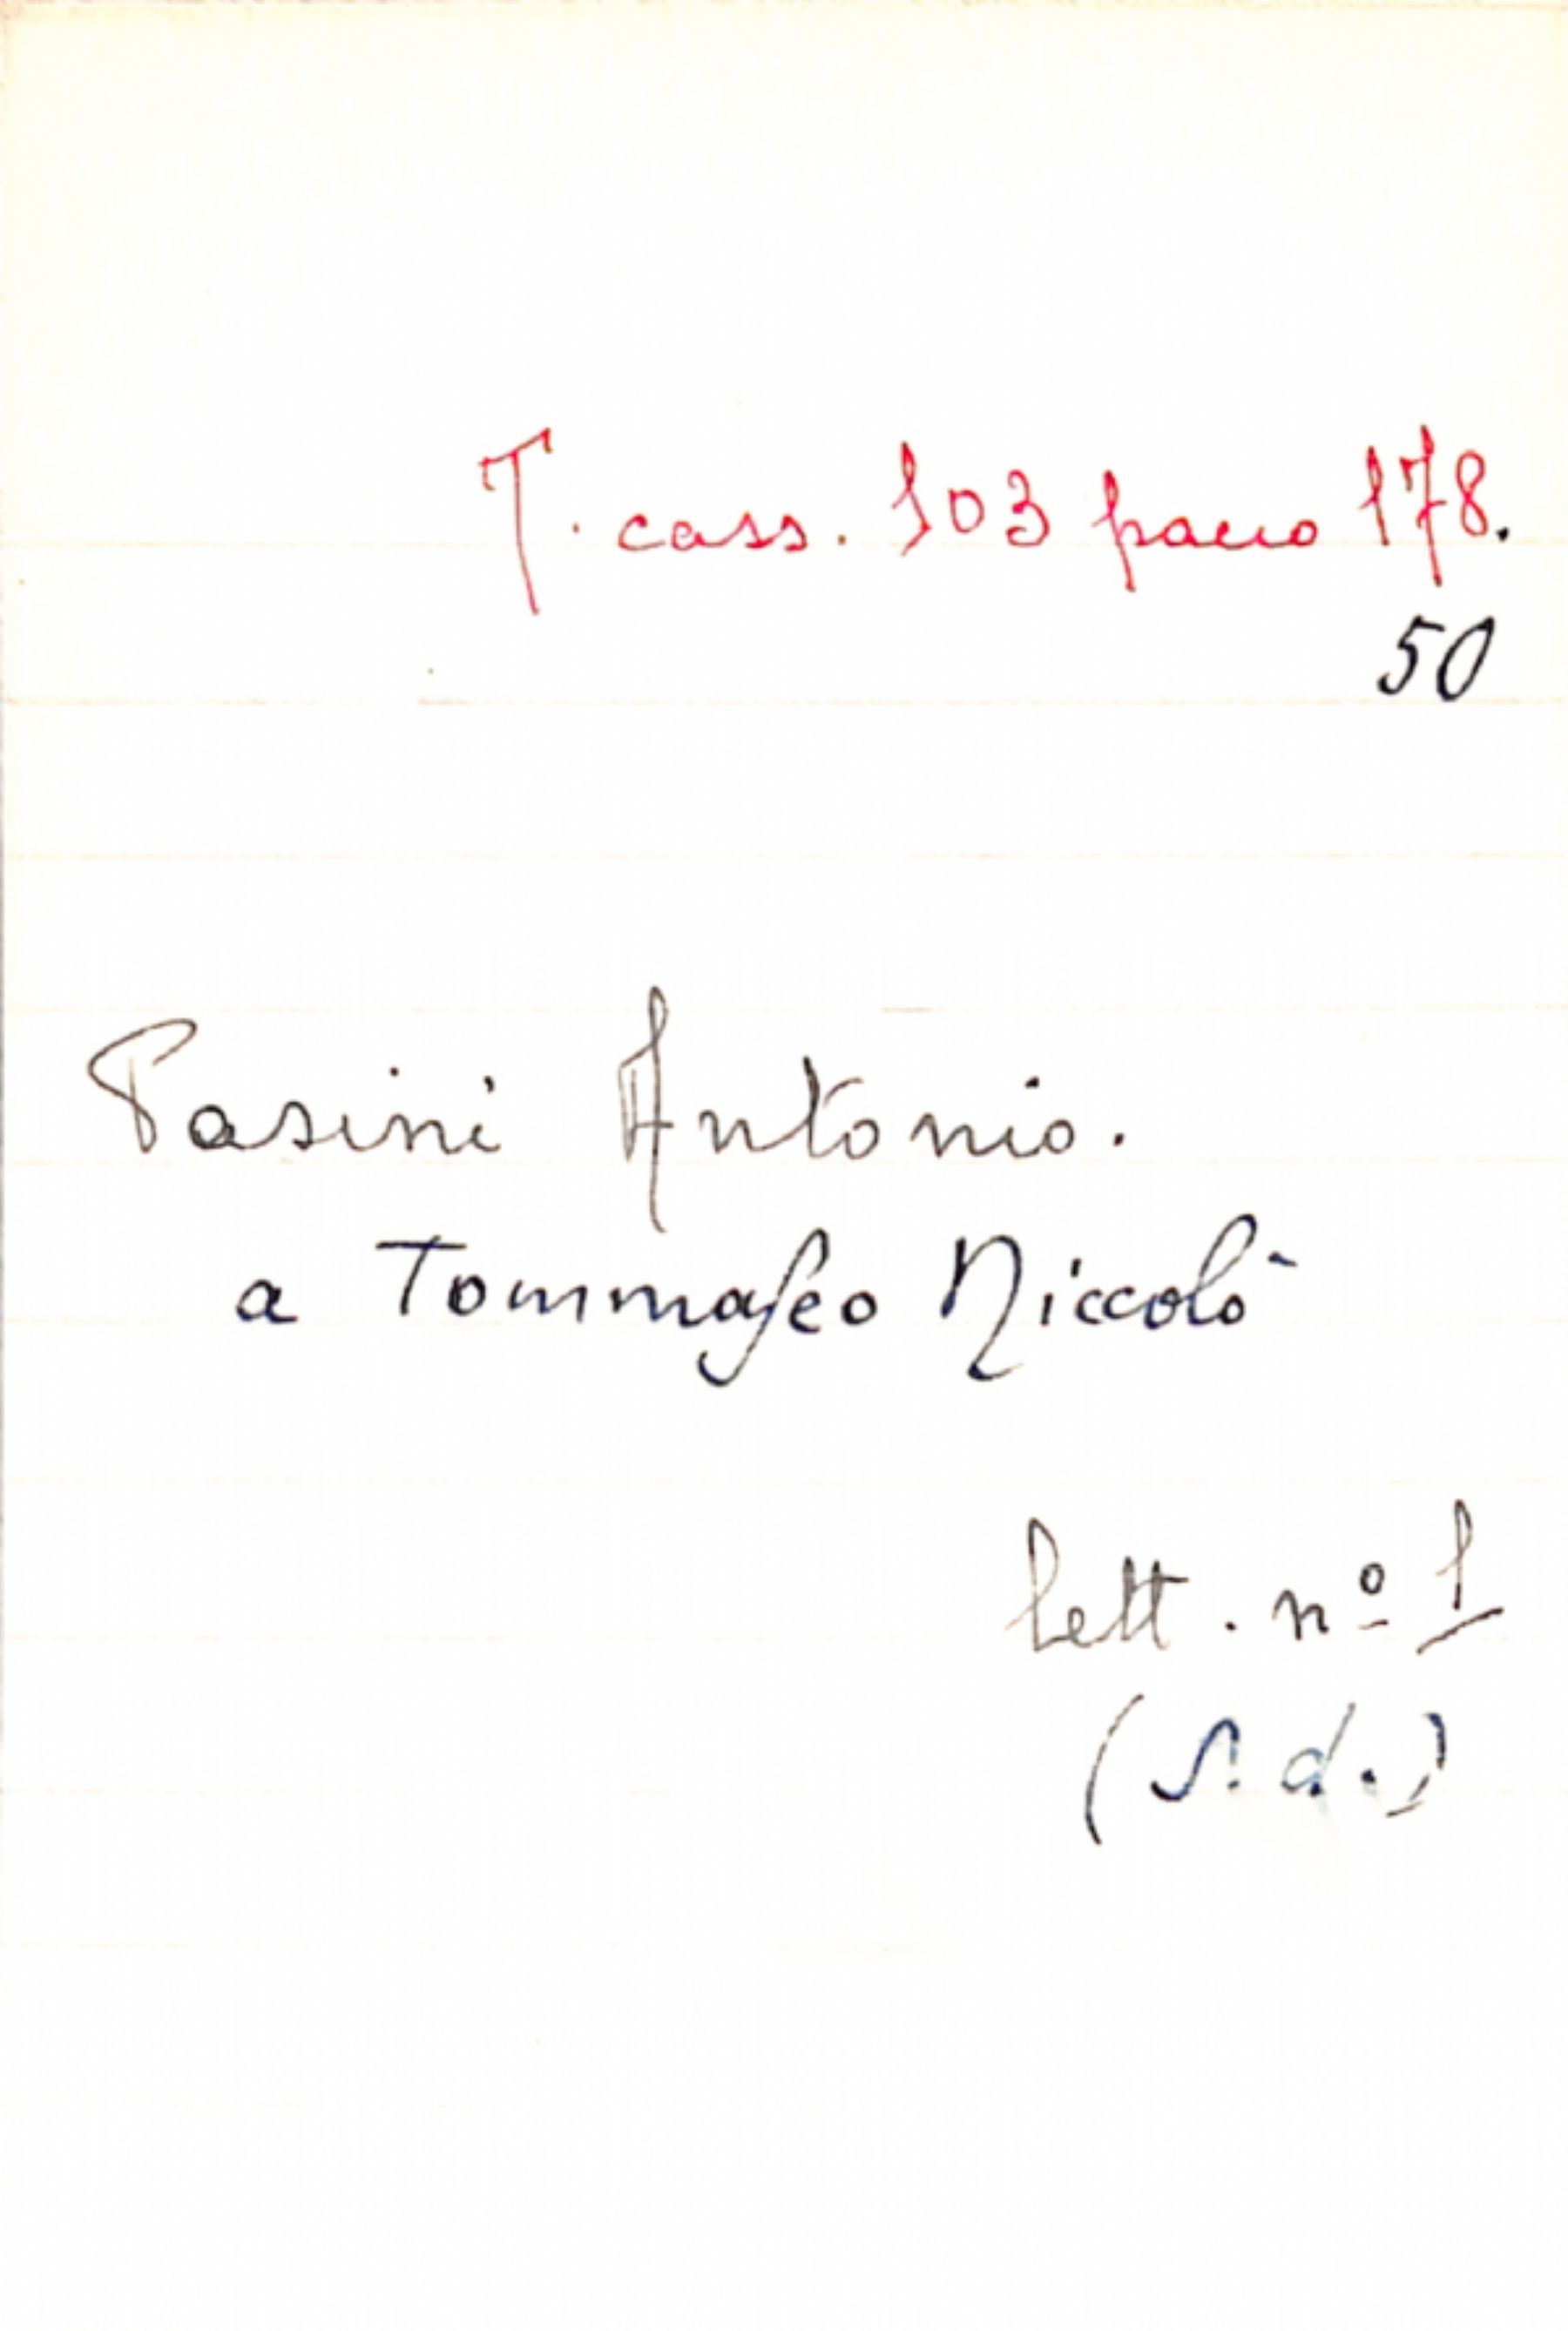 T. cass. 103 pacco 178.
50
Pasini Antonio.
a Tommaseo Niccolò
lett. nº 1
(s. d.)